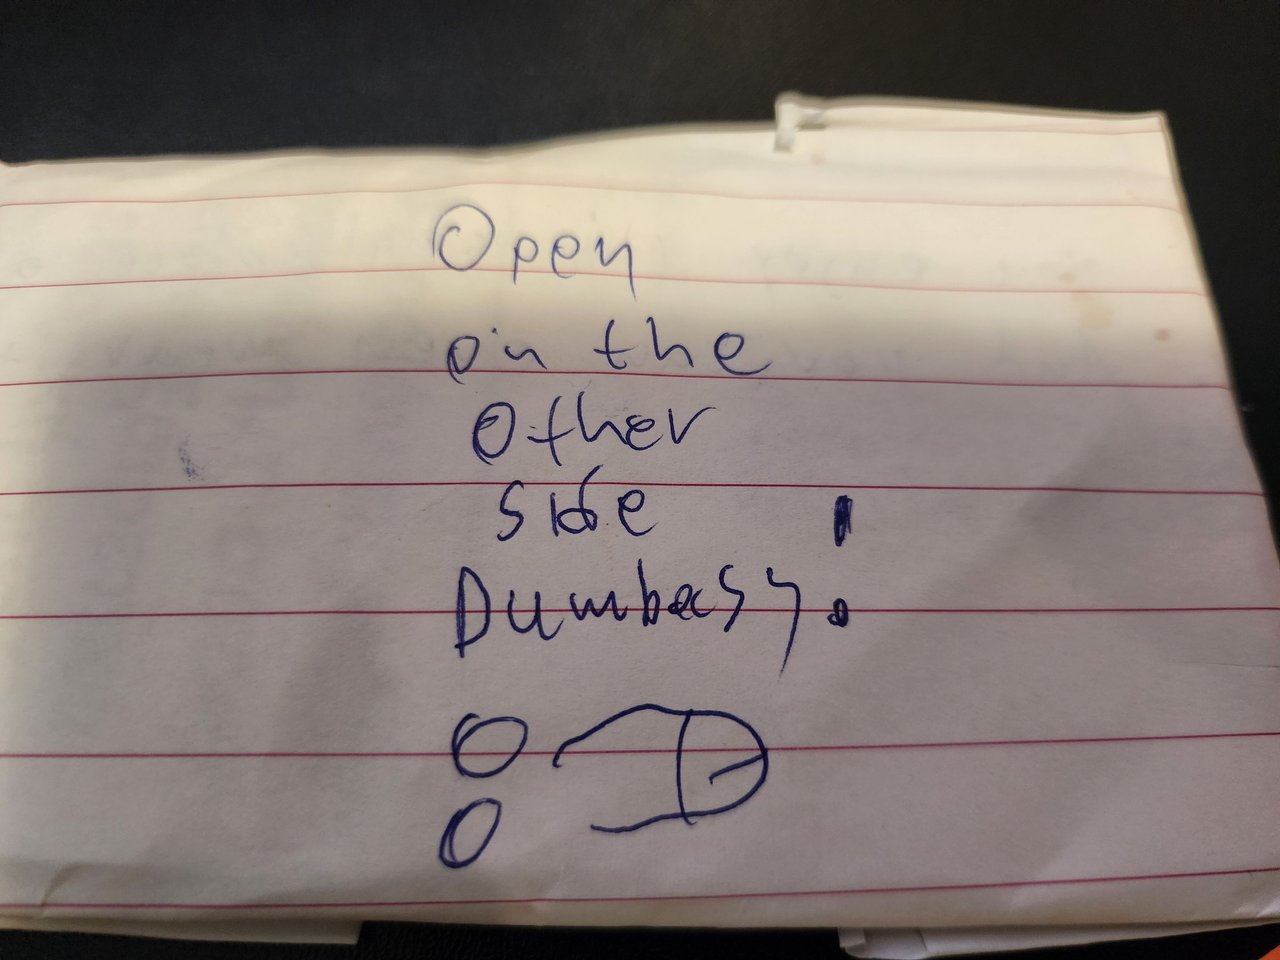 Open
on the
other
side
Dumbass!